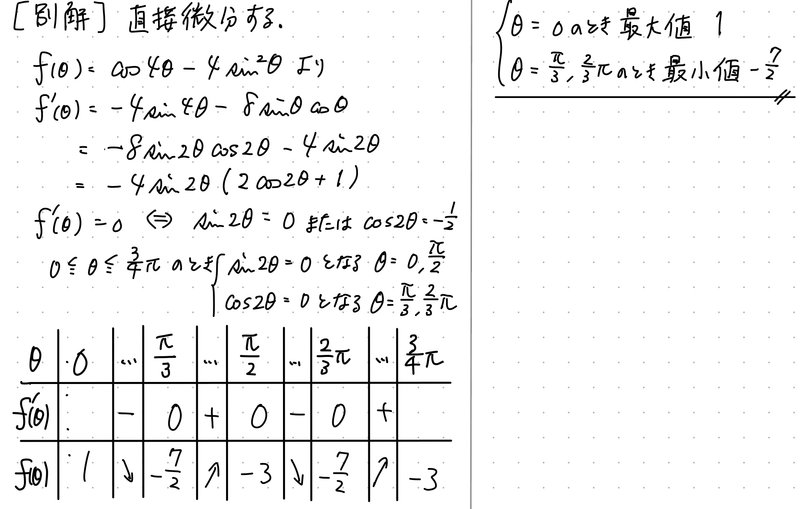 [別解] 直接微分する.
f(θ) = cos4θ - 4sin²θ より
f'(θ) = -4sin4θ - 8sinθcosθ
= -8sin2θcos2θ - 4sin2θ
= -4sin2θ(2cos2θ+1)
f'(θ)=0 ⇔ sin2θ=0 または cos2θ=-1/2
0≦θ≦3/4π のとき { sin2θ=0 となる θ=0, π/2
cos2θ=0 となる θ=π/3, 2/3π
θ | 0 | … | π/3 | … | π/2 | … | 2/3π | … | 3/4π
f'(θ) | | - | 0 | + | 0 | - | 0 | + |
f(θ) | 1 | ↘ | -7/2 | ↗ | -3 | ↘ | -7/2 | ↗ | -3
{ θ=0 のとき 最大値 1
θ=π/3, 2/3π のとき 最小値 -7/2